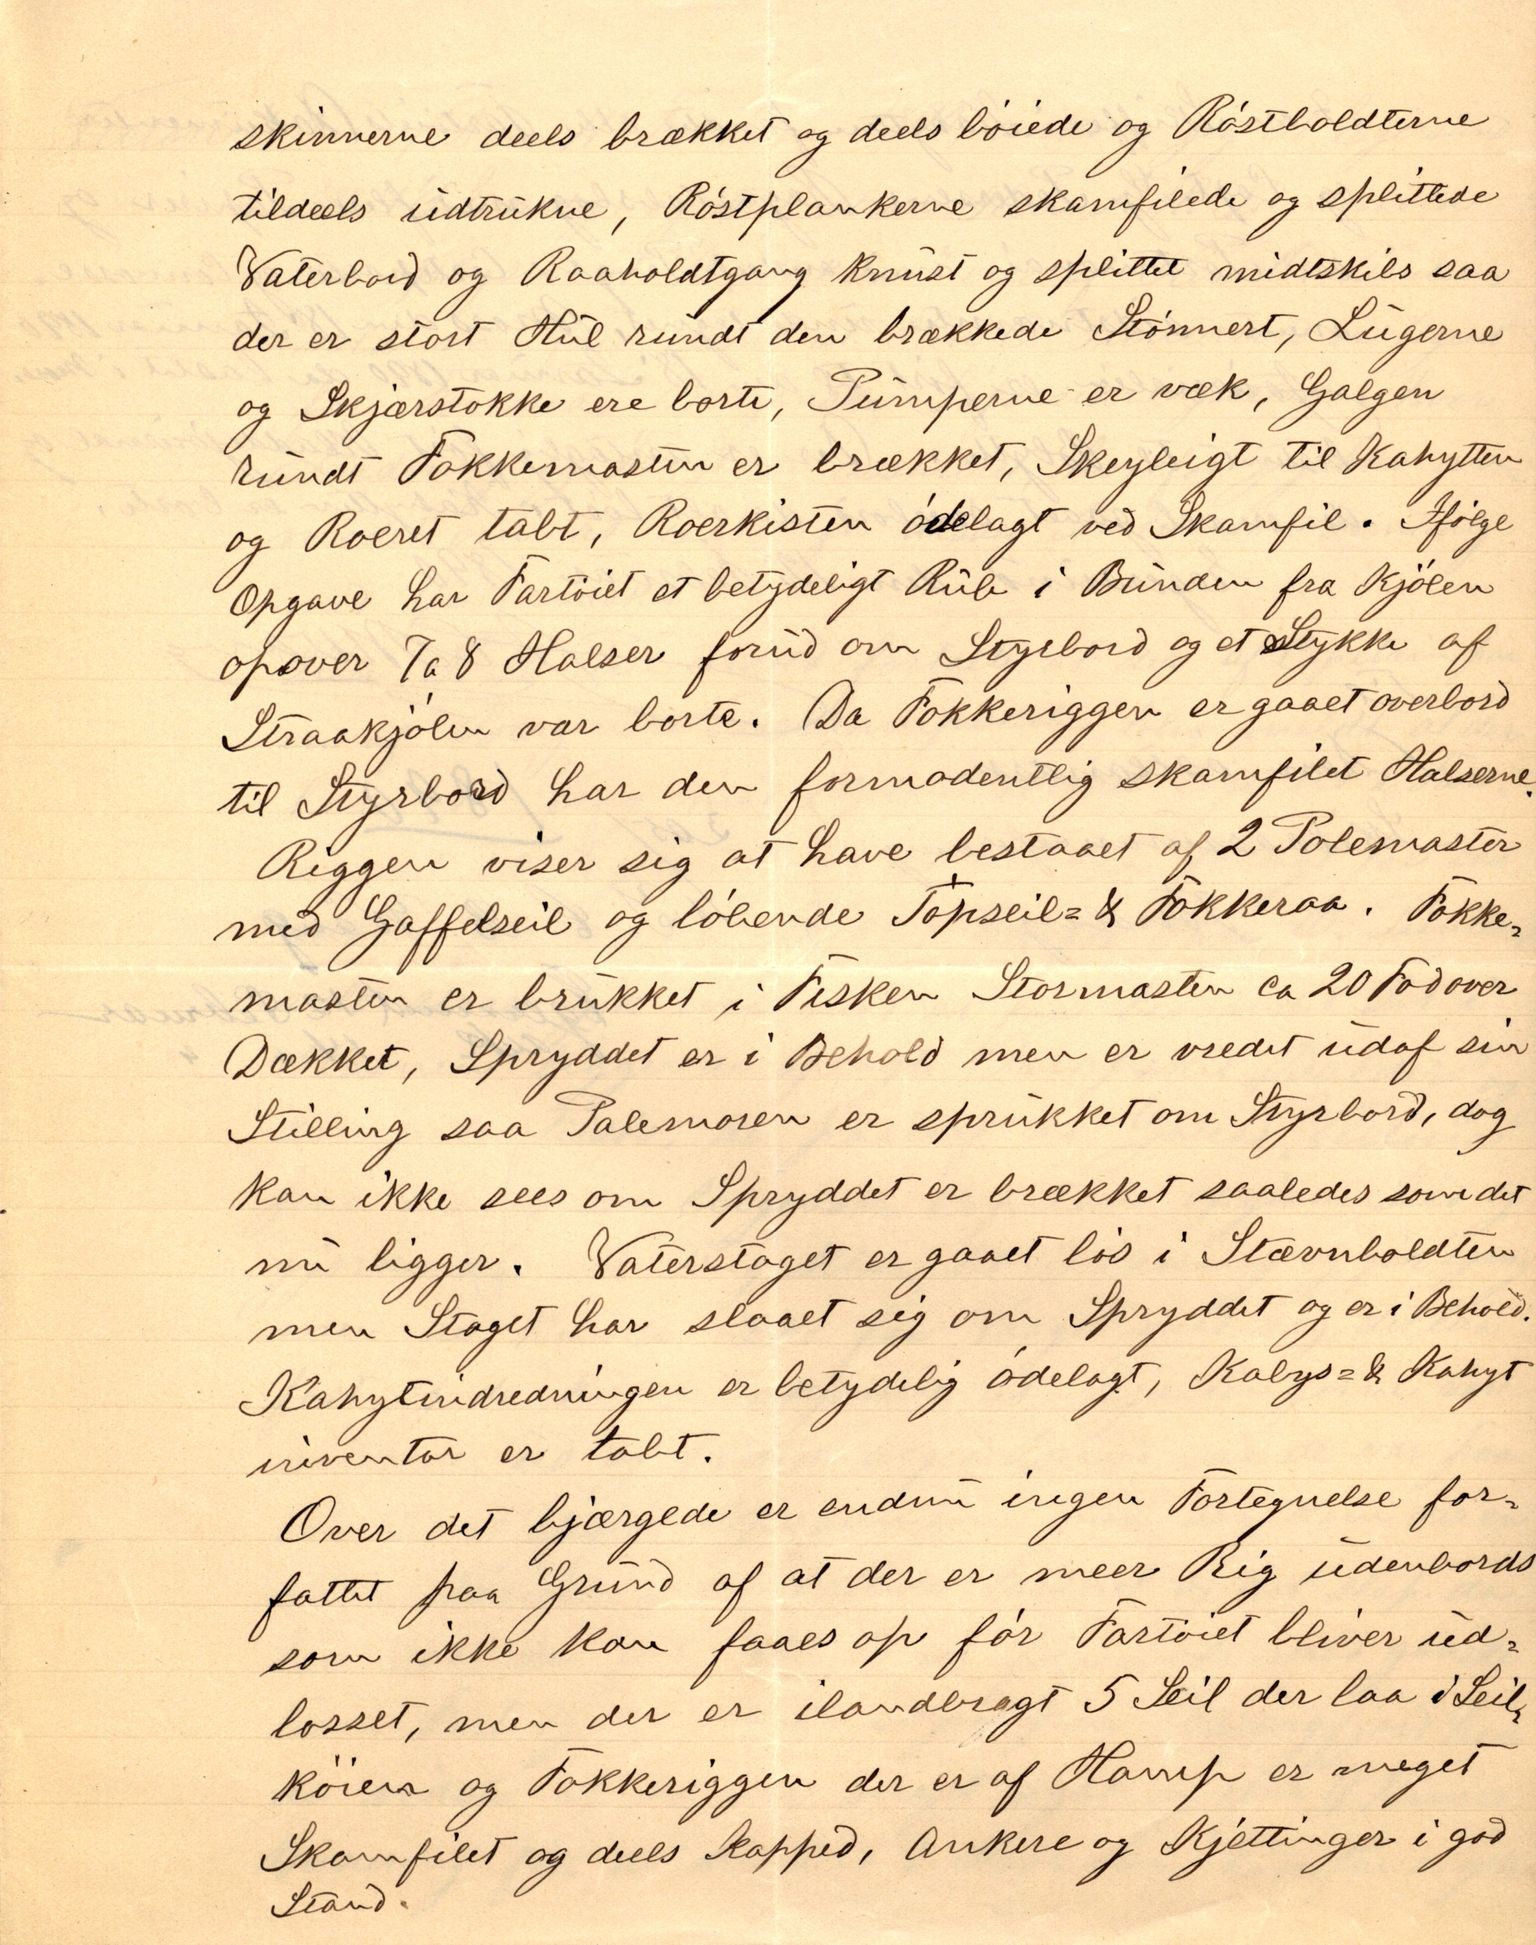 skinnerne deels brækket og deels böiede og Röstboldterne
tildeels udtrukne, Röstplankerne skamfilede og splittede
Vaterbord og Raaholdtgang knust og splittet midtskibs saa
der er stort Hul rundt den brækkede Stönnert, Lugerne
og Skjærstokke ere borte, Pumperne er væk, Galgen
rundt Fokkemasten er brækket, Skeyleigt til Kahytten
og Roeret tabt, Roerkisten ödelagt ved Skamfil. Ifölge
Opgave har Fartöiet et betydeligt Rub i Bunden fra Kjölen
opover 7 a 8 Halser forud om Styrbord og et Stykke af
Straakjölen var borte. Da Fokkeriggen er gaaet overbord
til Styrbord har den formodentlig skamfilet Halserne.
Riggen viser sig at have bestaaet af 2 Polemaster
med Gaffelseil og löbende Topseil= & Fokkeraa. Fokke=
masten er brukket i Fisken Stormasten ca 20 Fod over
Dækket, Spryddet er i Behold men er vredet udaf sin
Stilling saa Palemosen er sprukket om Styrbord, dog
kan ikke sees om Spryddet er brækket saaledes som det
nu ligger. Vaterstaget er gaaet lös i Stævnboldten
men Staget har slaaet sig om Spryddet og er i Behold.
Kahytindredningen er betydelig ödelagt, Kabys= & Kahyt
inventar er tabt.
Over det bjærgede er endnu ingen Fortegnelse for=
fattet paa Grund af at der er meer Rig udenbords
som ikke kan faaes op för Fartöiet bliver ud=
losset, men der er ilandbragt 5 Seil der laa i Seil=
köien og Fokkeriggen der er af Hamp er meget
Skamfilet og deels kapped, Ankere og Kjettinger i god
Stand.